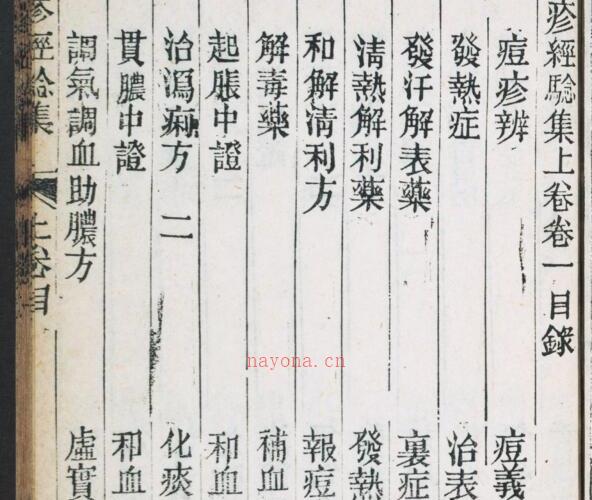 疹經驗集上卷卷一目錄
痘疹辨 痘義
發熱症 治表
發汗解表藥 裏症
清熱解利藥 發熱
和解清利方 報痘
解毒藥 補血
起脹中證 和血
治瀉痢方 二 化痰
貫膿中證 和血
調氣調血助膿方 虛實
疹經驗集 上卷目
nayona.cn